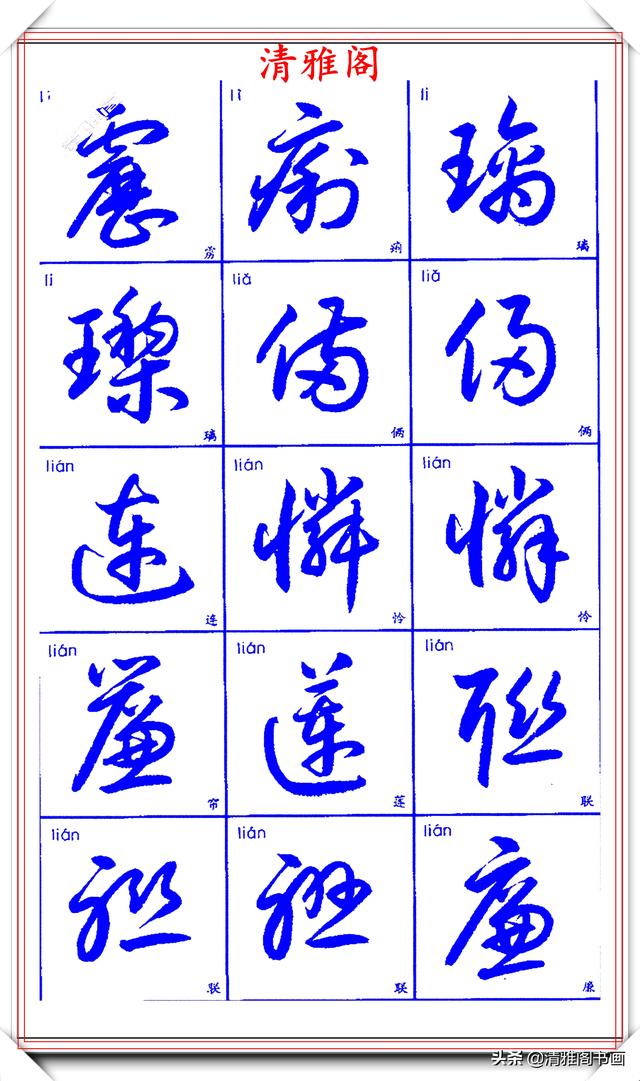 清雅阁
lì lì lí
雳 痢 璃
lí liǎ liǎ
璃 俩 俩
lián lián lián
连 怜 怜
lián lián lián
帘 莲 联
lián lián lián
联 联 廉
头条 @清雅阁书画